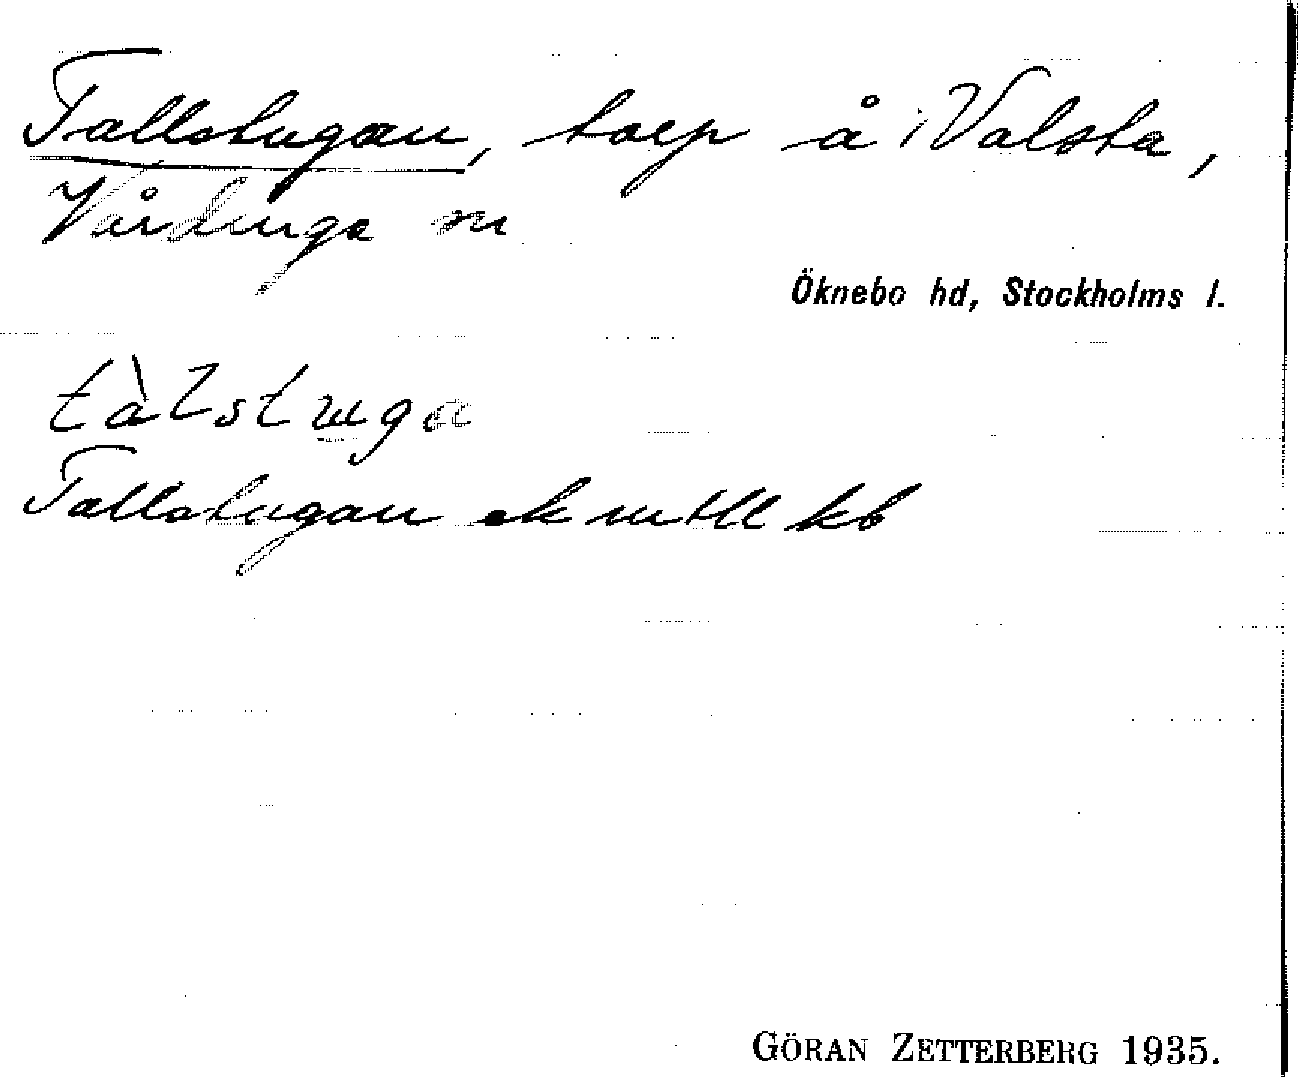 Tallstugan, torp å Valsta,
Vårdinga sn
Öknebo hd, Stockholms l.
tàlstuga
Tallstugan ek kb
GÖRAN ZETTERBERG 1935.